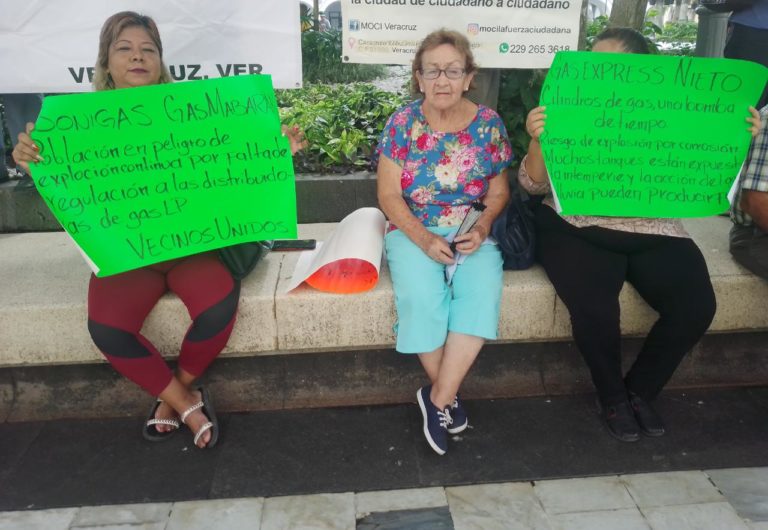 la ciudad de ciudadano a ciudadano
MOCI Veracruz
mocilafuerzaciudadana
Veracruz
229 265 3618
VERACRUZ, VER
SONIGAS GASMABARA
Población en peligro de
explocion continua por falta de
regulación a las distribuido-
ras de gas LP
VECINOS UNIDOS
GAS EXPRESS NIETO
Cilindros de gas, una bomba
de tiempo.
Riesgo de explosión por corrosión.
Muchos tanques están expuest
la intemperie y la acción de la
lluvia pueden producir